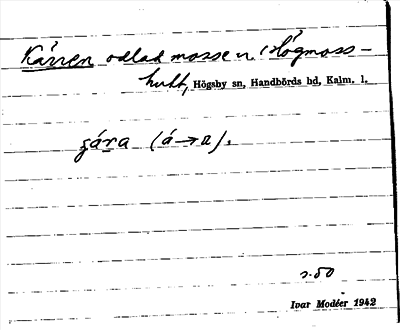 Kärren odlad mosse u. Högmoss-
hult, Högsby sn, Handbörds hd, Kalm. l.
çára (á→a).
s. 50
Ivar Modéer 1942